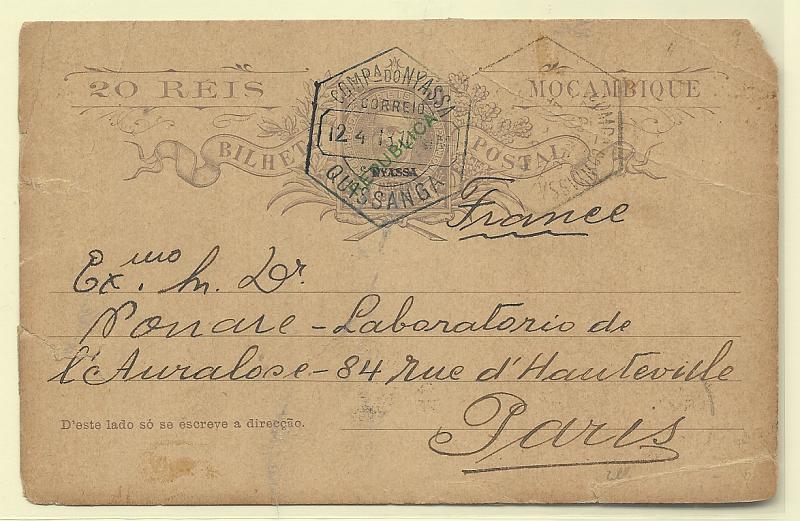 20 RÉIS
MOÇAMBIQUE
BILHETE POSTAL
COMPA DO NYASSA
CORREIO
12 4 13
REPUBLICA
NYASSA
QUISSANGA
France
Exmo. Dr.
Ponare - Laboratorio de
l'Auralose - 84 rue d'Hauteville
D'este lado só se escreve a direcção.
Paris